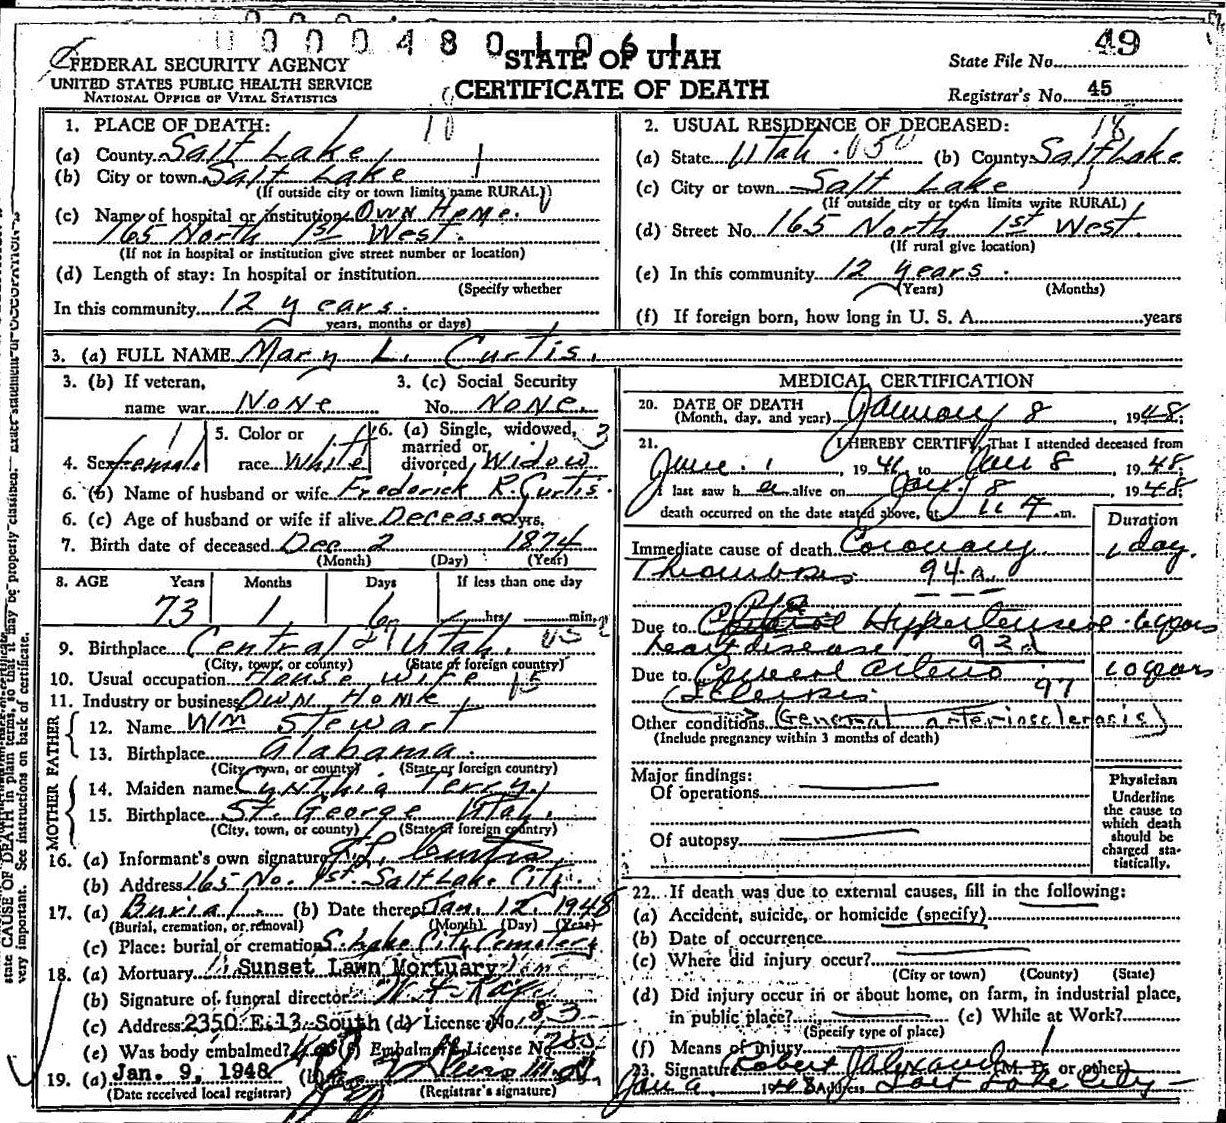 0 0 0 4 8 0 1 0 6 1
FEDERAL SECURITY AGENCY
UNITED STATES PUBLIC HEALTH SERVICE
NATIONAL OFFICE OF VITAL STATISTICS
STATE OF UTAH
CERTIFICATE OF DEATH
State File No. 49
Registrar's No. 45
1. PLACE OF DEATH:
(a) County Salt Lake
(b) City or town Salt Lake
(If outside city or town limits name RURAL)
(c) Name of hospital or institution Own Home.
165 North 1st West.
(If not in hospital or institution give street number or location)
(d) Length of stay: In hospital or institution
(Specify whether
In this community 12 years.
years, months or days)
2. USUAL RESIDENCE OF DECEASED:
(a) State Utah. (b) County Salt Lake
(c) City or town Salt Lake
(If outside city or town limits write RURAL)
(d) Street No. 165 North 1st West.
(If rural give location)
(e) In this community 12 years.
(Years) (Months)
(f) If foreign born, how long in U. S. A. years
3. (a) FULL NAME Mary L. Curtis.
3. (b) If veteran,
name war None
3. (c) Social Security
No. None.
4. Sex female
5. Color or
race White
6. (a) Single, widowed,
married or
divorced, Widow
6. (b) Name of husband or wife Frederick R. Curtis.
6. (c) Age of husband or wife if alive Deceased yrs.
7. Birth date of deceased Dec 2 1874
(Month) (Day) (Year)
8. AGE Years Months Days If less than one day
73 1 6 hrs. min.
9. Birthplace Central Utah.
(City, town, or county) (State of foreign country)
10. Usual occupation House wife
11. Industry or business Own Home
FATHER
12. Name Wm Stewart
13. Birthplace Alabama.
(City, town, or county) (State or foreign country)
MOTHER
14. Maiden name Cynthia Terry.
15. Birthplace St. George Utah.
(City, town, or county) (State of foreign country)
16. (a) Informant's own signature Curtis
(b) Address 165 No. 1st. Salt Lake City.
17. (a) Burial. (b) Date thereof Jan. 12 1948
(Burial, cremation, or removal) (Month) (Day) (Year)
(c) Place: burial or cremation S. Lake City Cemetery
18. (a) Mortuary Sunset Lawn Mortuary
(b) Signature of funeral director
(c) Address 2350 E. 13 South (d) License No. 83
(e) Was body embalmed? Yes (f) Embalmer License No.
19. (a) Jan. 9, 1948 (b)
(Date received local registrar) (Registrar's signature)
MEDICAL CERTIFICATION
20. DATE OF DEATH
(Month, day, and year) January 8 1948
21. I HEREBY CERTIFY, That I attended deceased from
June 1 1946 to Jan 8 1948
I last saw her alive on Jan. 8 1948
death occurred on the date stated above, at m.
Duration
Immediate cause of death Coronary 1 day.
Thrombosis 94a
Due to Hypertensive 6 years
heart disease 93d
Due to General arterio 10 years
Sclerosis 97
Other conditions (General arteriosclerosis)
(Include pregnancy within 3 months of death)
Major findings:
Of operations
Of autopsy
Physician
Underline
the cause to
which death
should be
charged sta-
tistically.
22. If death was due to external causes, fill in the following:
(a) Accident, suicide, or homicide (specify)
(b) Date of occurrence
(c) Where did injury occur?
(City or town) (County) (State)
(d) Did injury occur in or about home, on farm, in industrial place,
in public place? (e) While at Work?
(Specify type of place)
(f) Means of injury
23. Signature Robert J Alexander (M. D. or other)
Jan 9 1948 Address Salt Lake City
state CAUSE OF DEATH in plain terms, so that it may be properly classified. Exact statement of OCCUPATION is
very important. See instructions on back of certificate.